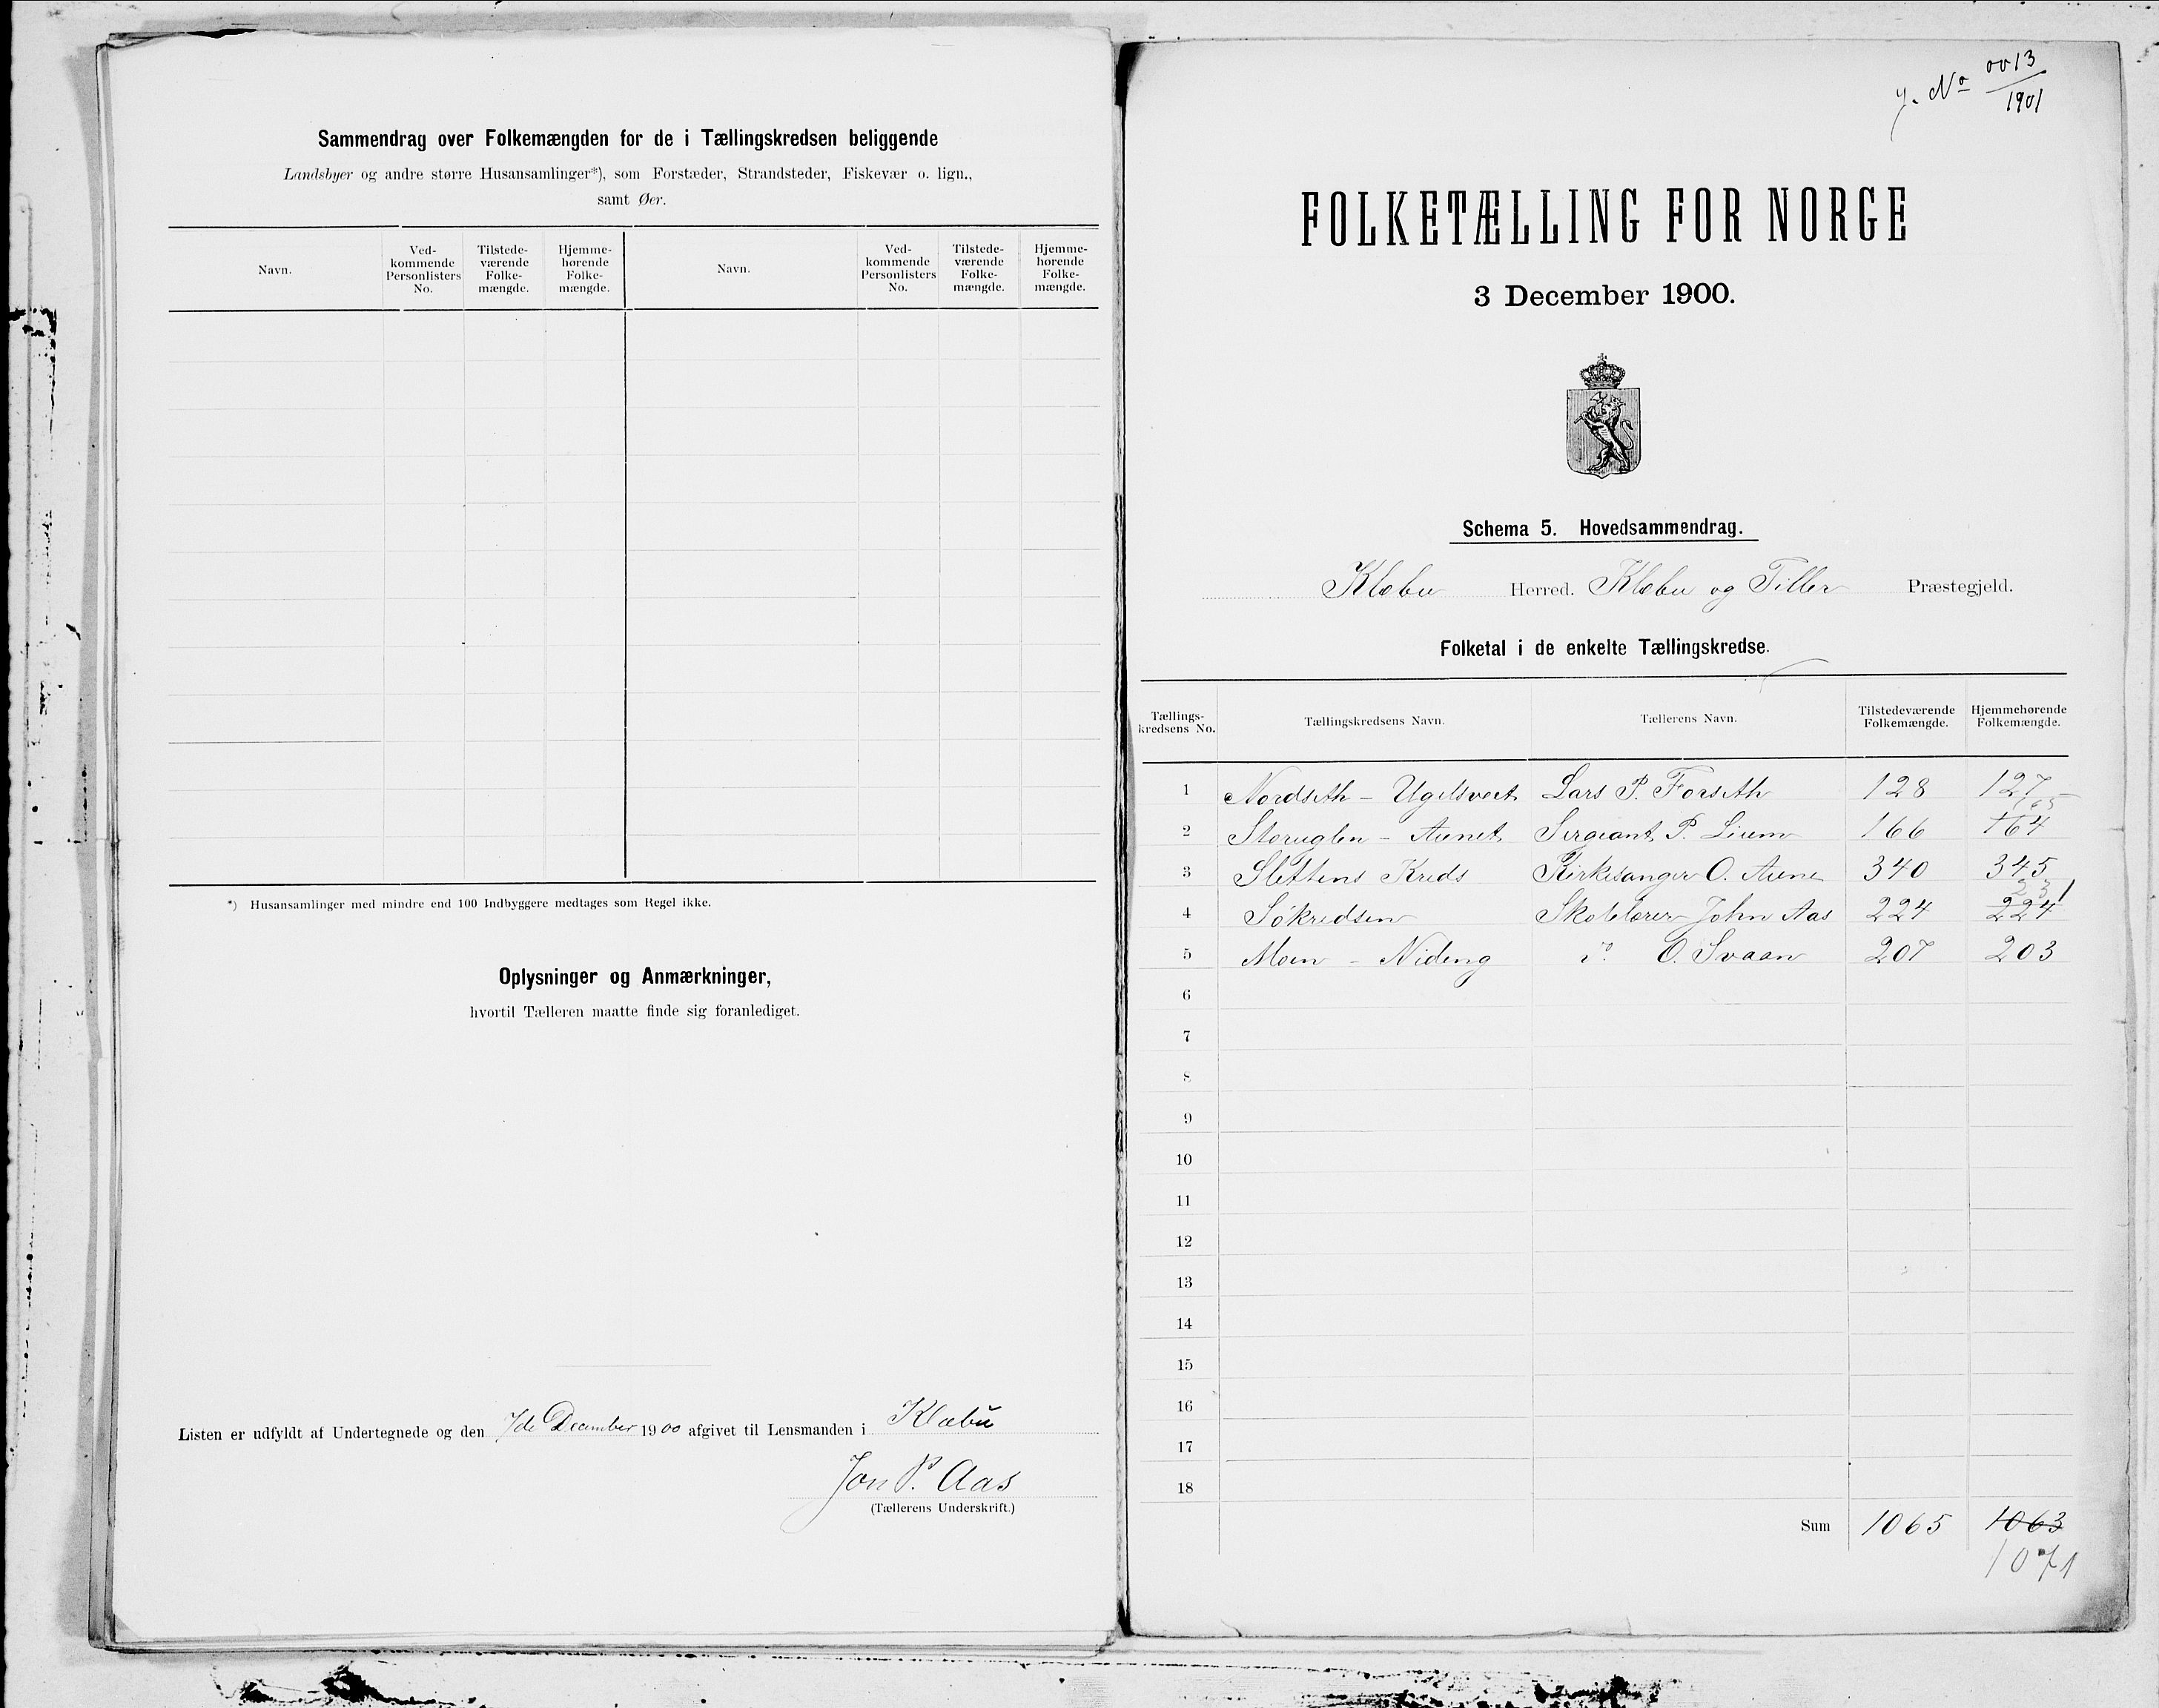 Sammendrag over Folkemængden for de i Tællingskredsen beliggende
Landsbyer og andre større Husansamlinger*), som Forstæder, Strandsteder, Fiskevær o. lign.,
samt Øer.
Navn.
Ved-
kommende
Personlisters
No.
Tilstede-
værende
Folke-
mængde.
Hjemme-
hørende
Folke-
mængde.
Navn.
Ved-
kommende
Personlisters
No.
Tilstede-
værende
Folke-
mængde.
Hjemme-
hørende
Folke-
mængde.
*) Husansamlinger med mindre end 100 Indbyggere medtages som Regel ikke.
Oplysninger og Anmærkninger,
hvortil Tælleren maatte finde sig foranlediget.
Listen er udfyldt af Undertegnede og den 7de December 1900 afgivet til Lensmanden i Klæbu
Jon P. Aas
(Tællerens Underskrift.)
J. No 0013
1901
FOLKETÆLLING FOR NORGE
3 December 1900.
Schema 5. Hovedsammendrag.
Klæbu Herred. Klæbu og Tiller Præstegjeld.
Folketal i de enkelte Tællingskredse.
Tællings-
kredsens No.
Tællingskredsens Navn.
Tællerens Navn.
Tilstedeværende
Folkemængde.
Hjemmehørende
Folkemængde.
1 Nordseth - Ugelsveet Lars P. Forseth 128 127
165
2 Storuglen - Aunet Sergeant P. Lium 166 164
3 Slettens Kreds Kirkesanger O. Aune 340 345
231
4 Sökredsen Skolelærer John Aas 224 224
5 Moen - Nideng do. O. Svaan 207 203
6
7
8
9
10
11
12
13
14
15
16
17
18
Sum 1065 1063
1071